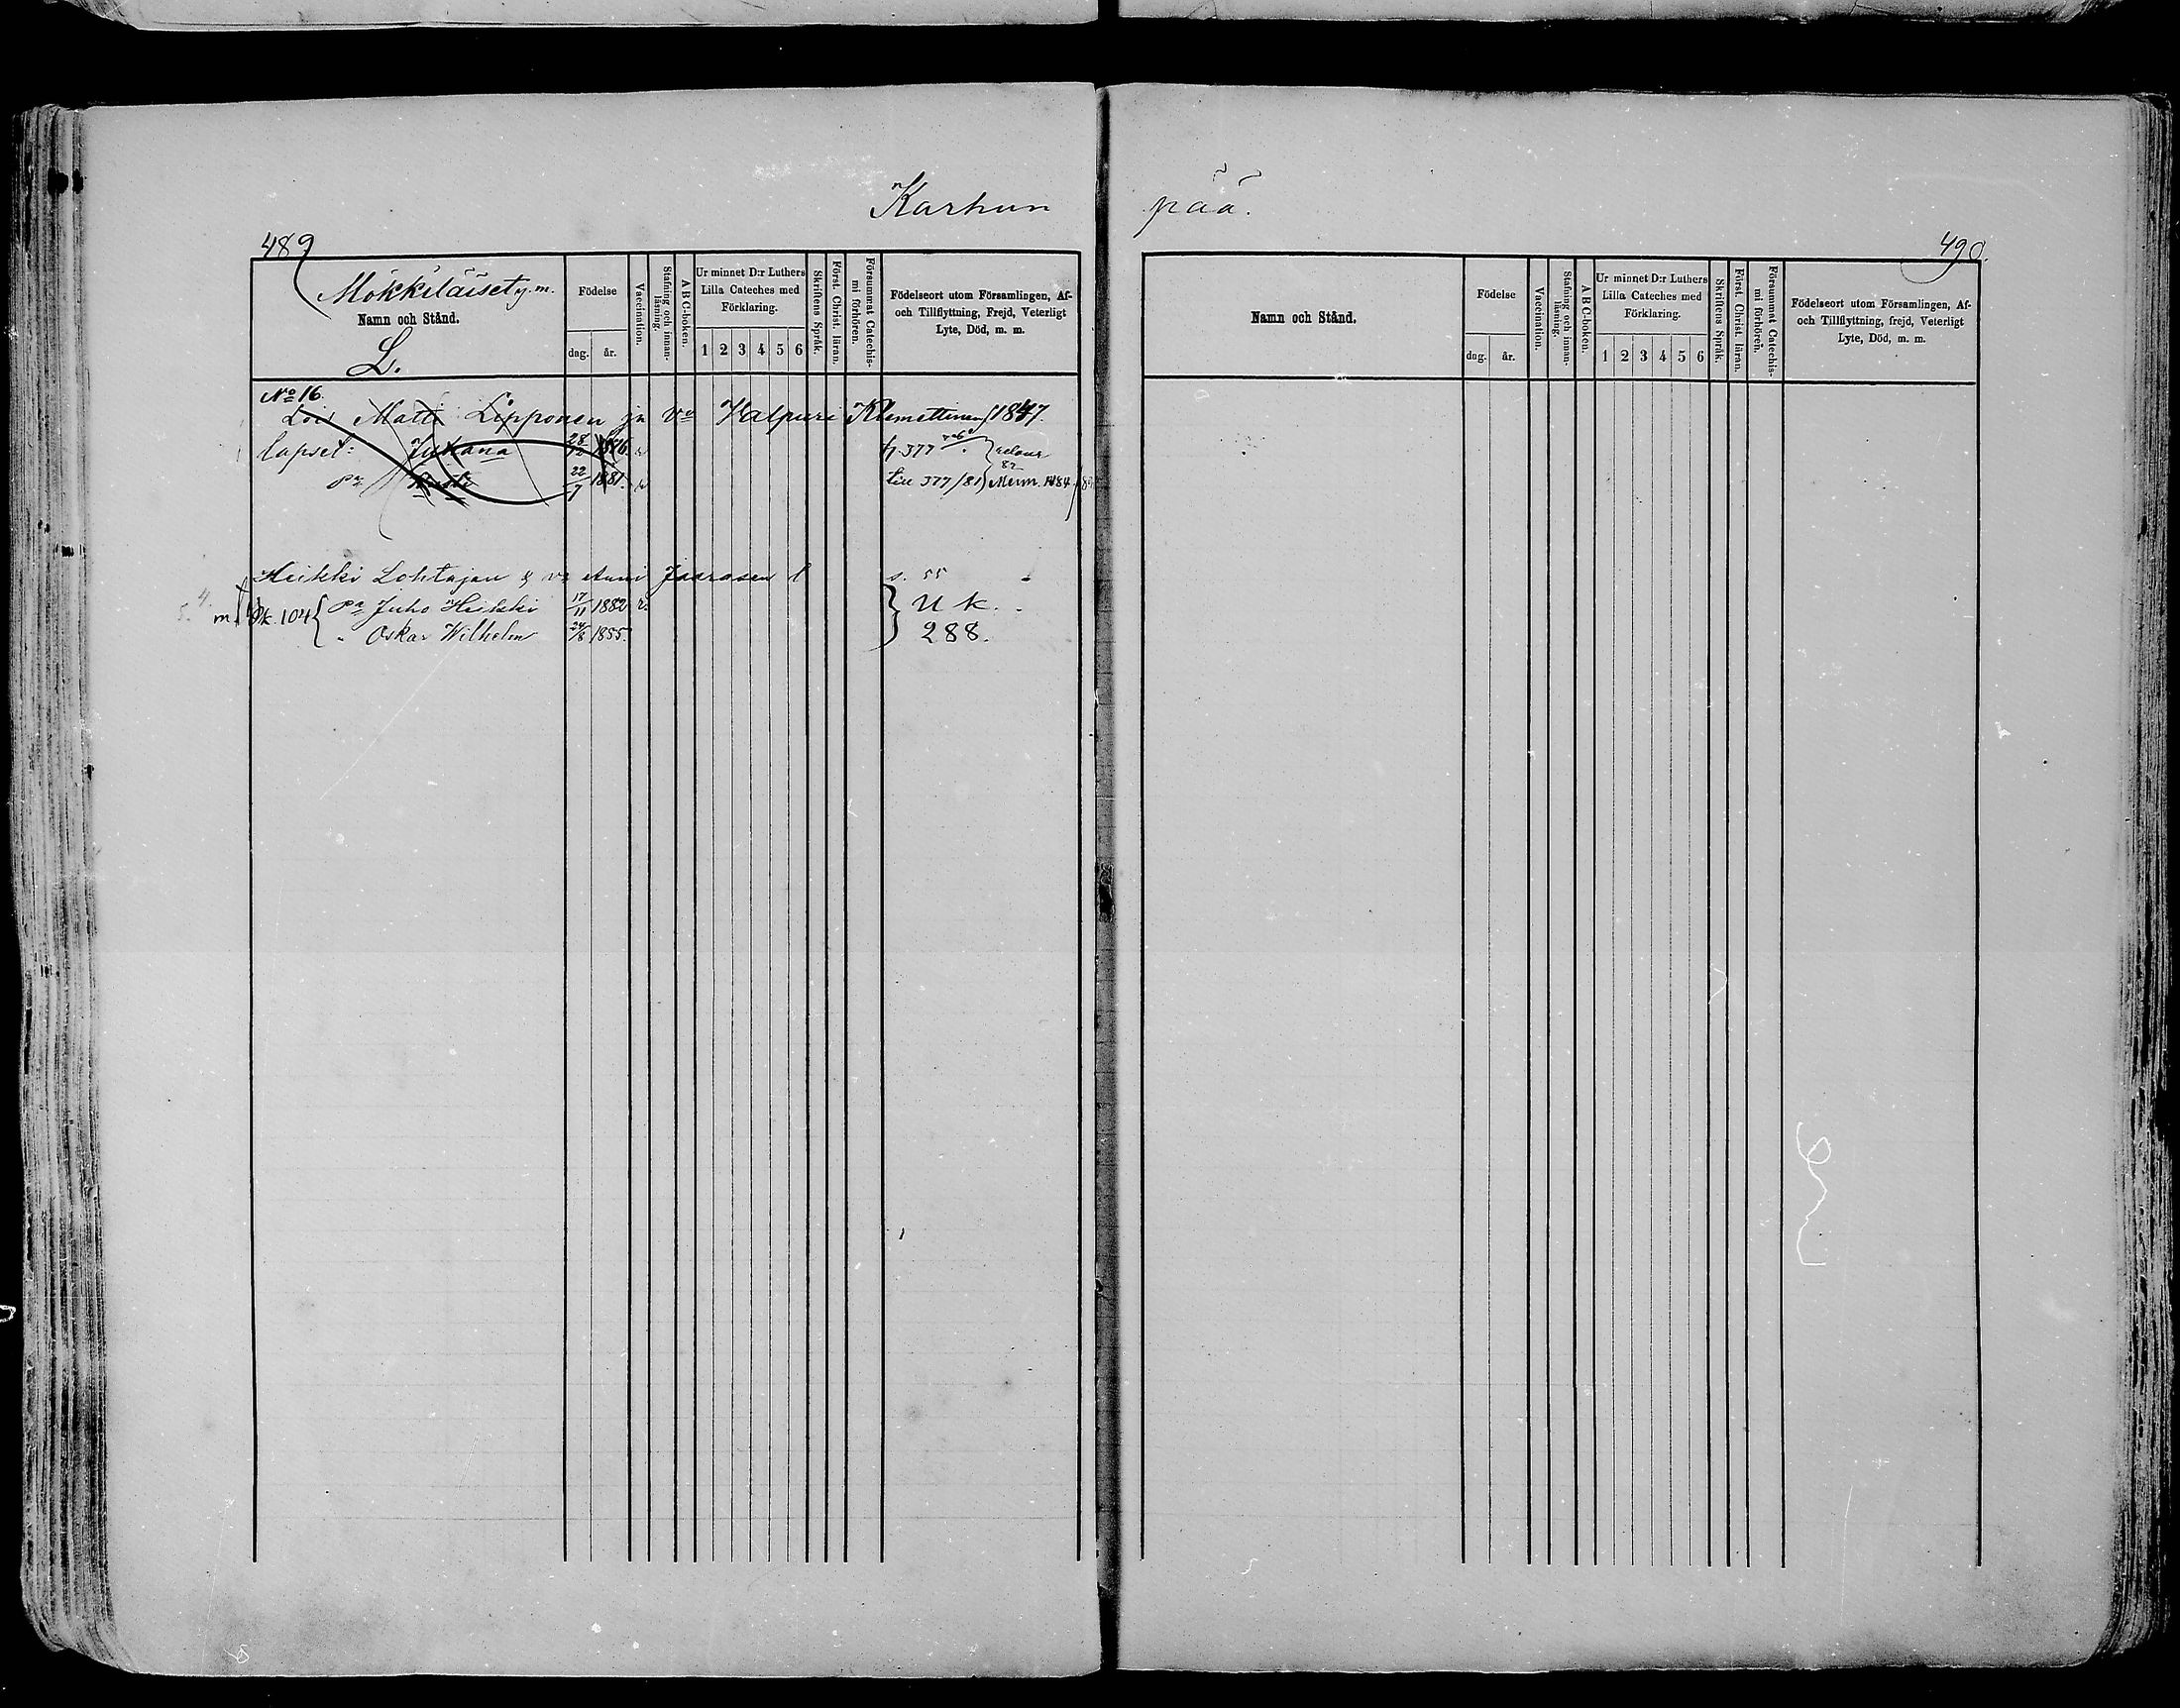 Karhun pää.
489
Mökkiläiset y. m.
Namn och Stånd.
L.
Födelse
dag. år.
Vaccination.
Stafning och innanläsning.
A B C-boken.
Ur minnet D:r Luthers Lilla Cateches med Förklaring.
1 2 3 4 5 6
Skriftens Språk.
Först. Christ. läran.
Försummat Catechismi förhören.
Födelseort utom Församlingen, Af- och Tillflyttning, Frejd, Veterligt Lyte, Död, m. m.
No 16.
Loi Matti Lipponen ja vo Valpuri Klemettinen 1847.
lapset: Juhana 28/12 1876 v 377
pa 22/7 1881. v 377/81
Heikki Lohtajan & va Anni s. 55
m. Pk. 104 pa Juho Heikki 17/11 1882 v. U K.
" Oskar Wilhelm 24/8 1855. 288.
490.
Namn och Stånd.
Födelse
dag. år.
Vaccination.
Stafning och innanläsning.
A B C-boken.
Ur minnet D:r Luthers Lilla Cateches med Förklaring.
1 2 3 4 5 6
Skriftens Språk.
Först. Christ. läran.
Försummat Catechismi förhören.
Födelseort utom Församlingen, Af- och Tillflyttning, frejd, Veterligt Lyte, Död, m. m.